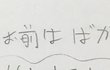 お前はばか